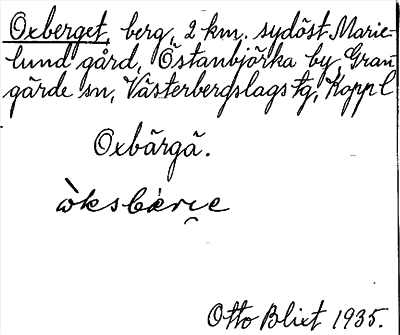 Oxberget, berg, 2 km. sydöst Marie-
lund gård, Östanbjörka by, Gran-
gärde sn, Västerbergslags tg, Koppl
Oxbärgä.
Otto Blixt 1935.